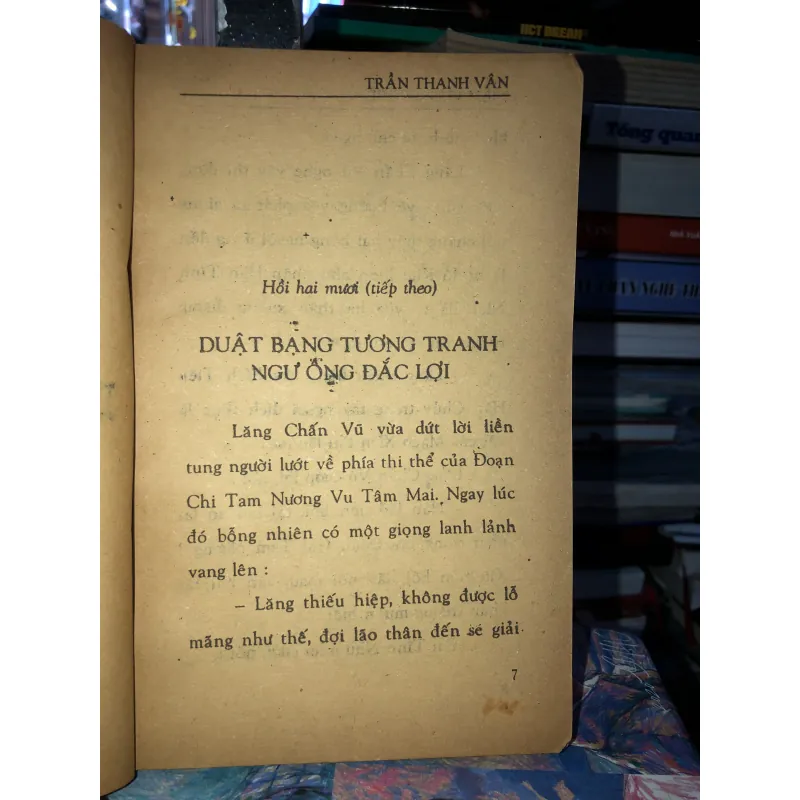 TRẦN THANH VÂN
Hồi hai mươi (tiếp theo)
DUẬT BẠNG TƯƠNG TRANH
NGƯ ÔNG ĐẮC LỢI
Lăng Chấn Vũ vừa dứt lời liền
tung người lướt về phía thi thể của Đoạn
Chi Tam Nương Vu Tâm Mai. Ngay lúc
đó bỗng nhiên có một giọng lanh lảnh
vang lên :
– Lăng thiếu hiệp, không được lỗ
mãng như thế, đợi lão thân đến sẽ giải
7
HCT DREAM
Tổng quan